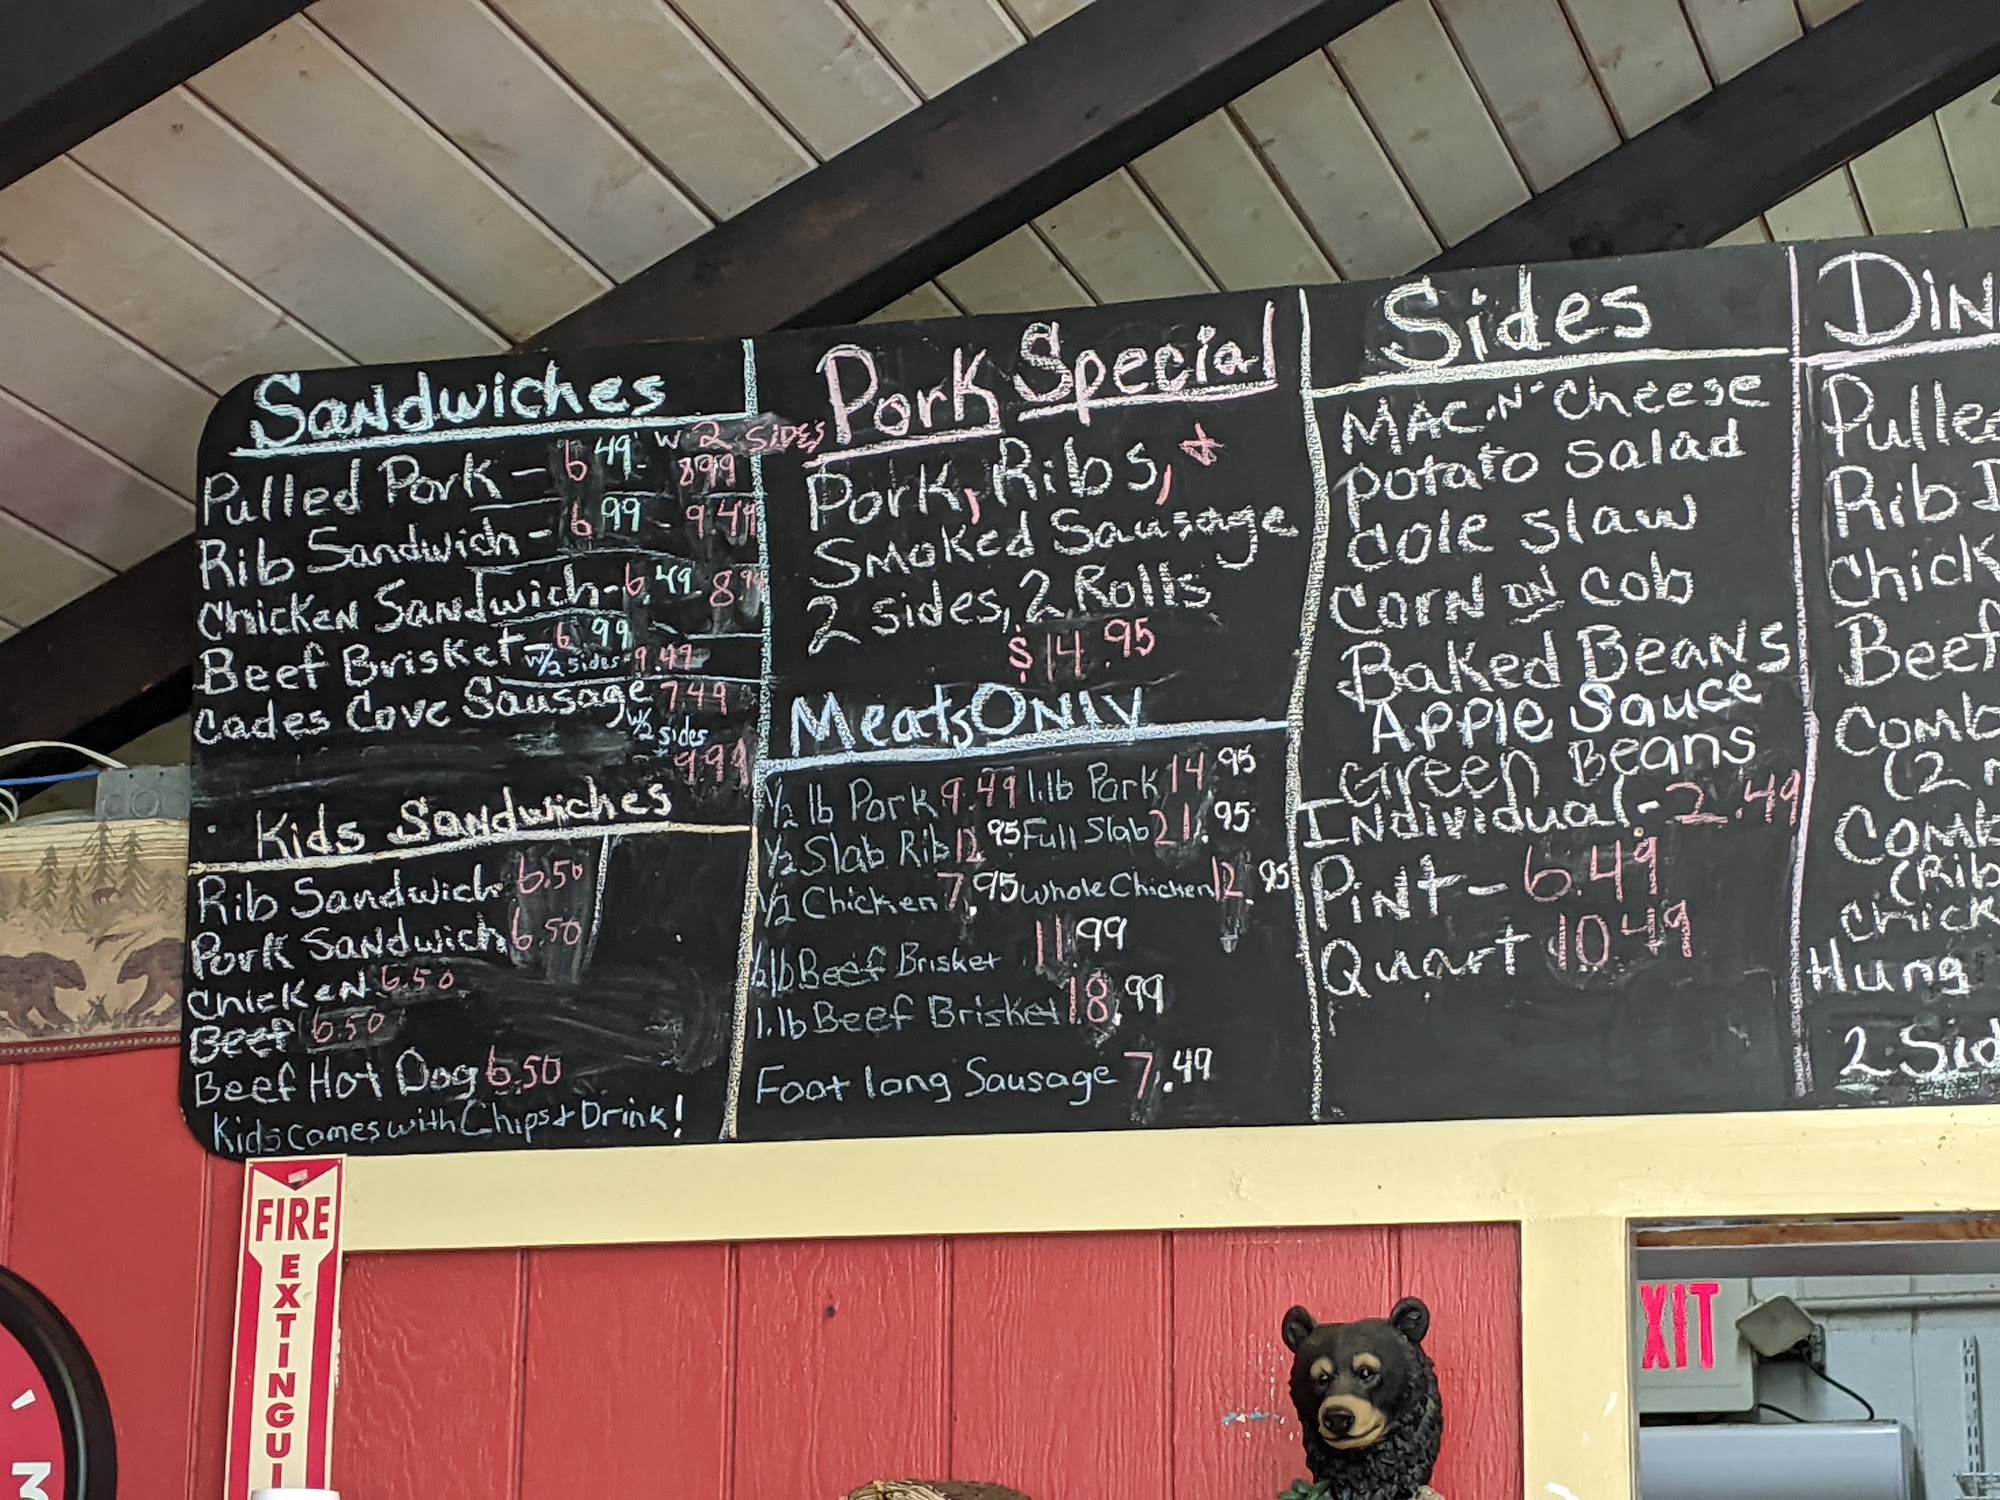 Sandwiches
W 2 SIDES
Pulled Pork - 6 49 - 899
Rib Sandwich - 6 99 - 9.49
Chicken Sandwich - 6.49 8.99
Beef Brisket - 6 99
W/2 Sides - 9.49
Cades Cove Sausage 7.49
W/2 sides
- 9.99
Kids Sandwiches
Rib Sandwich 6.50
Pork Sandwich 6.50
Chicken 6.50
Beef 6.50
Beef Hot Dog 6.50
Kids comes with Chips & Drink!
Pork Special
Pork, Ribs, +
Smoked Sausage
2 sides, 2 Rolls
$14.95
Meats Only
1/2 lb Pork 9.49 1.lb Pork 14 95
1/2 Slab Rib 12 95 Full Slab 21.95
1/2 Chicken 7.95 Whole Chicken 12.95
1/2 lb Beef Brisket 11 99
1.lb Beef Brisket 18.99
Foot long Sausage 7.49
Sides
Mac-N-Cheese
Potato Salad
Cole Slaw
Corn on Cob
Baked Beans
Apple Sauce
Green Beans
Individual - 2.49
Pint - 6.49
Quart 10 49
Din
Pulled
Rib D
Chick
Beef
Comb
(2 
Comb
(Rib
Chick
Hung
2 Sid
FIRE
EXTINGUI
3
XIT